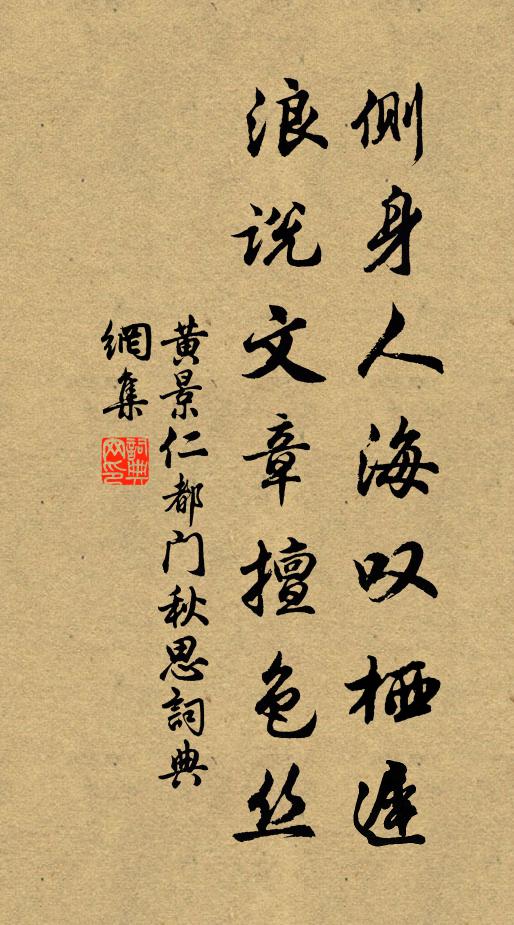 侧身人海叹栖遲
浪说文章擅色丝
黄景仁都门秋思詞典
網集
詞典網印